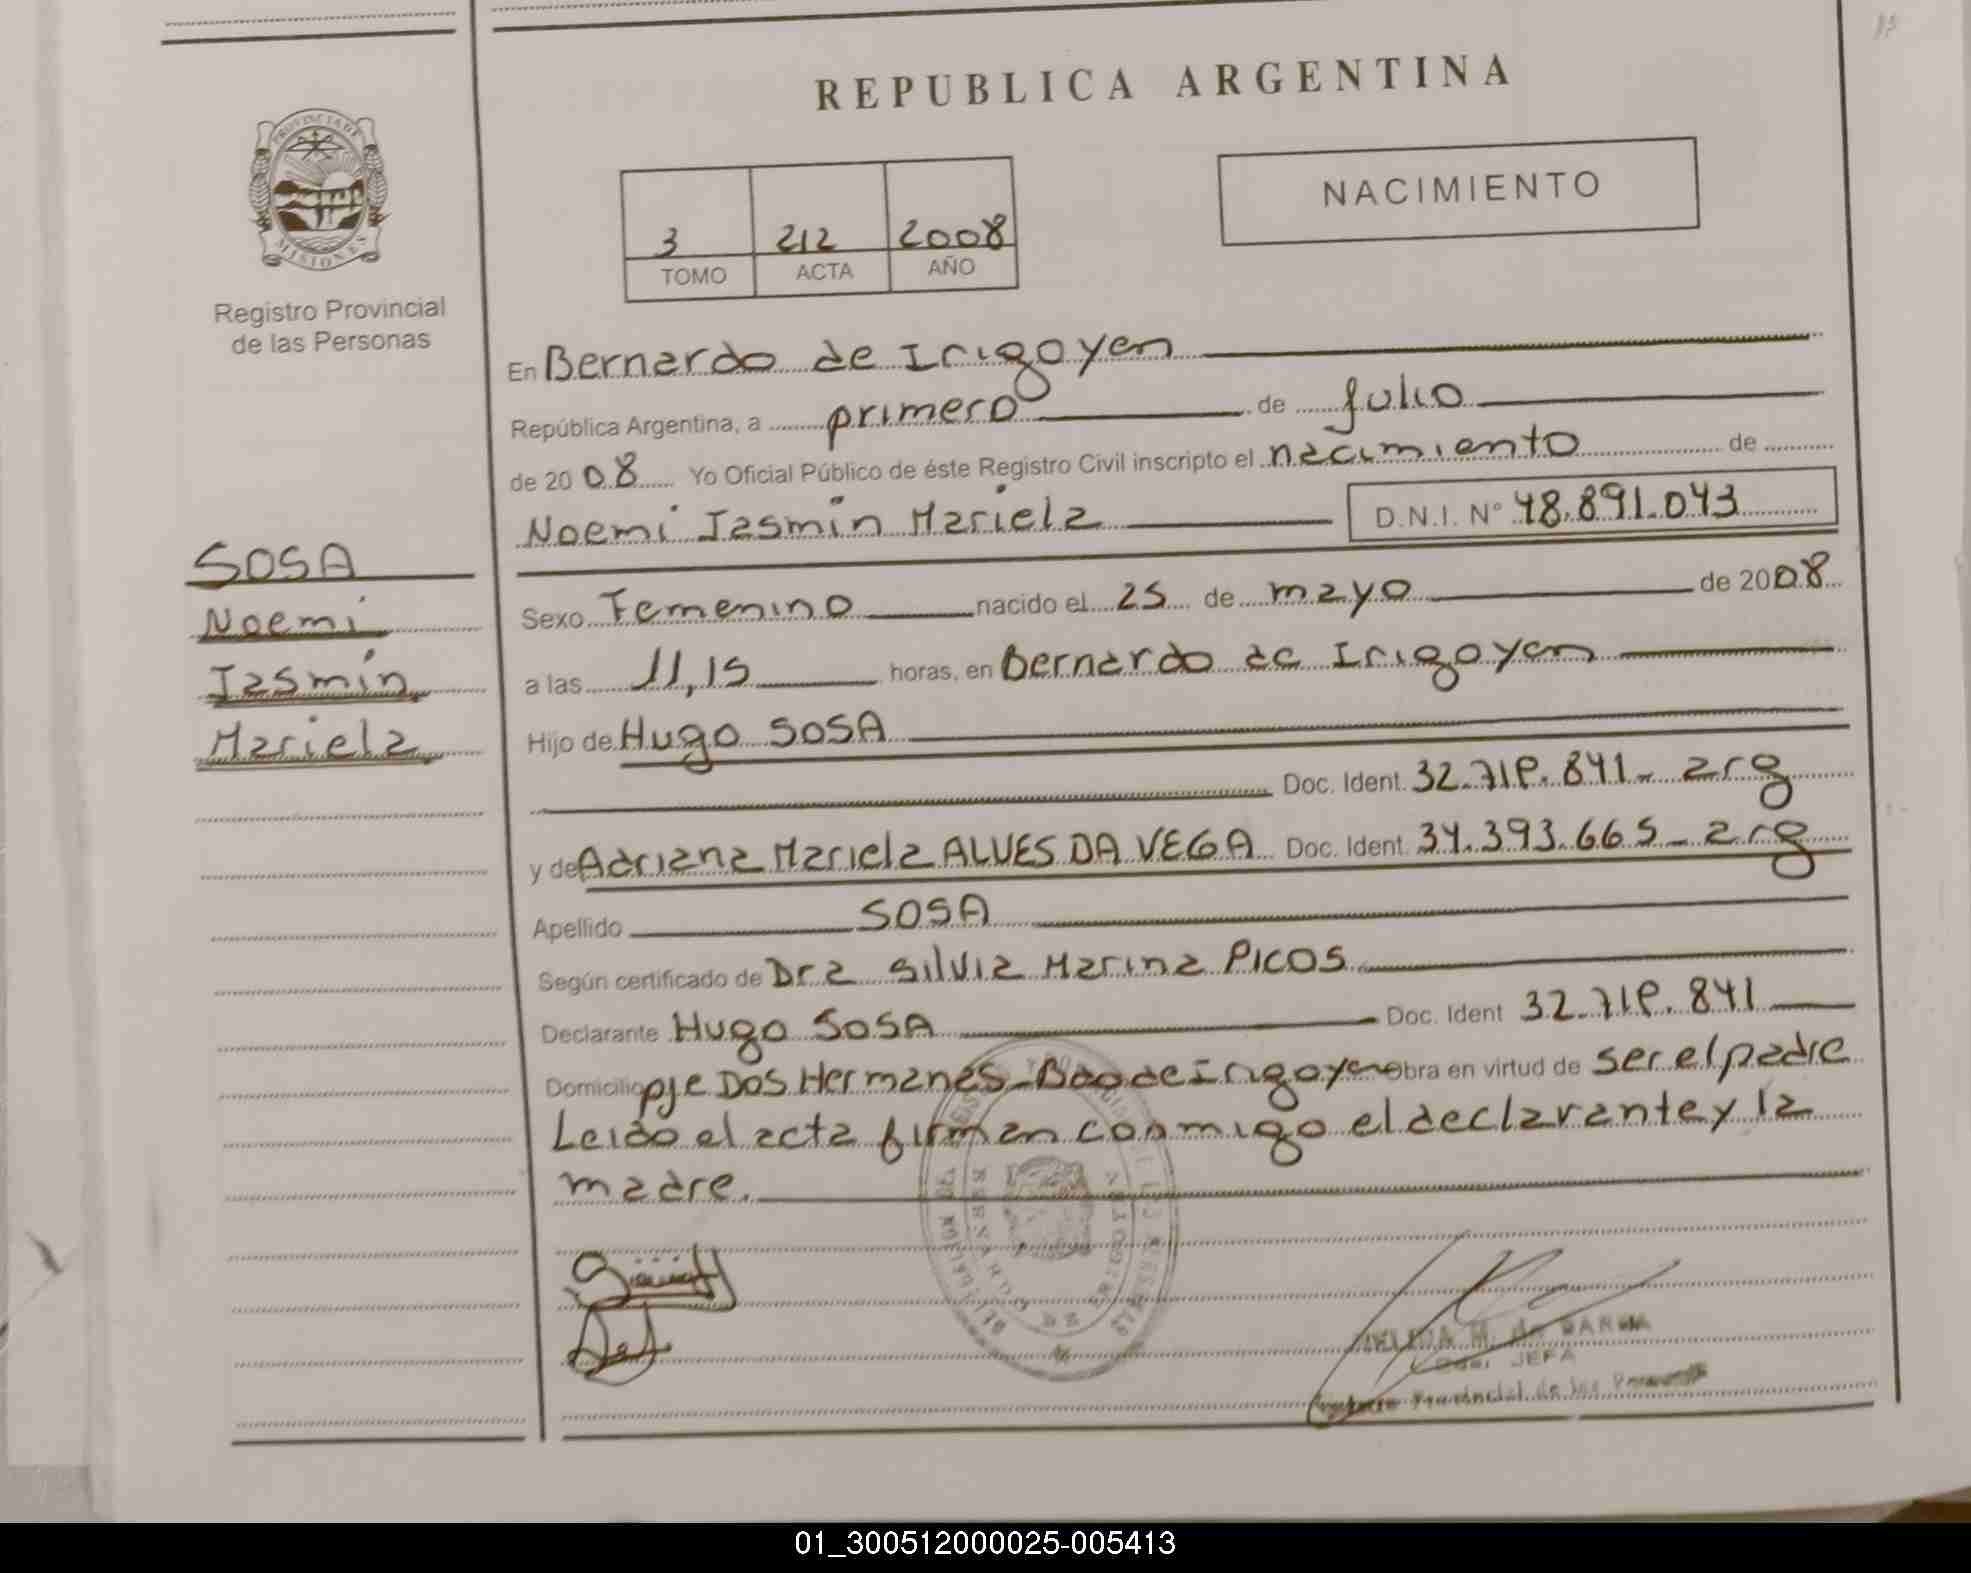 REPUBLICA ARGENTINA
PROVINCIA DE
MISIONES
Registro Provincial
de las Personas
NACIMIENTO
3 212 2008
TOMO ACTA AÑO
En Bernardo de Irigoyen
República Argentina, a primero de julio
de 2008 Yo Oficial Público de éste Registro Civil inscripto el nacimiento de
Noemi Iasmin Mariela D.N.I. N° 48.891.043
SOSA
Noemi
Iasmin
Mariela
Sexo Femenino nacido el 25 de mayo de 2008
a las 11,15 horas, en Bernardo de Irigoyen
Hijo de Hugo SOSA
Doc. Ident. 32.719.841- arg
y de Adriana Mariela ALVES DA VEGA Doc. Ident. 34.393.665- arg
Apellido SOSA
Según certificado de Dra Silvia Marina PICOS
Declarante Hugo SOSA Doc. Ident 32.719.841
Domicilio pje Dos Hermanas-Bdo de Irigoyen obra en virtud de ser el padre
Leido el acta firman conmigo el declarante y la
madre.
M. de
JEFA
Provincial de las
01_300512000025-005413